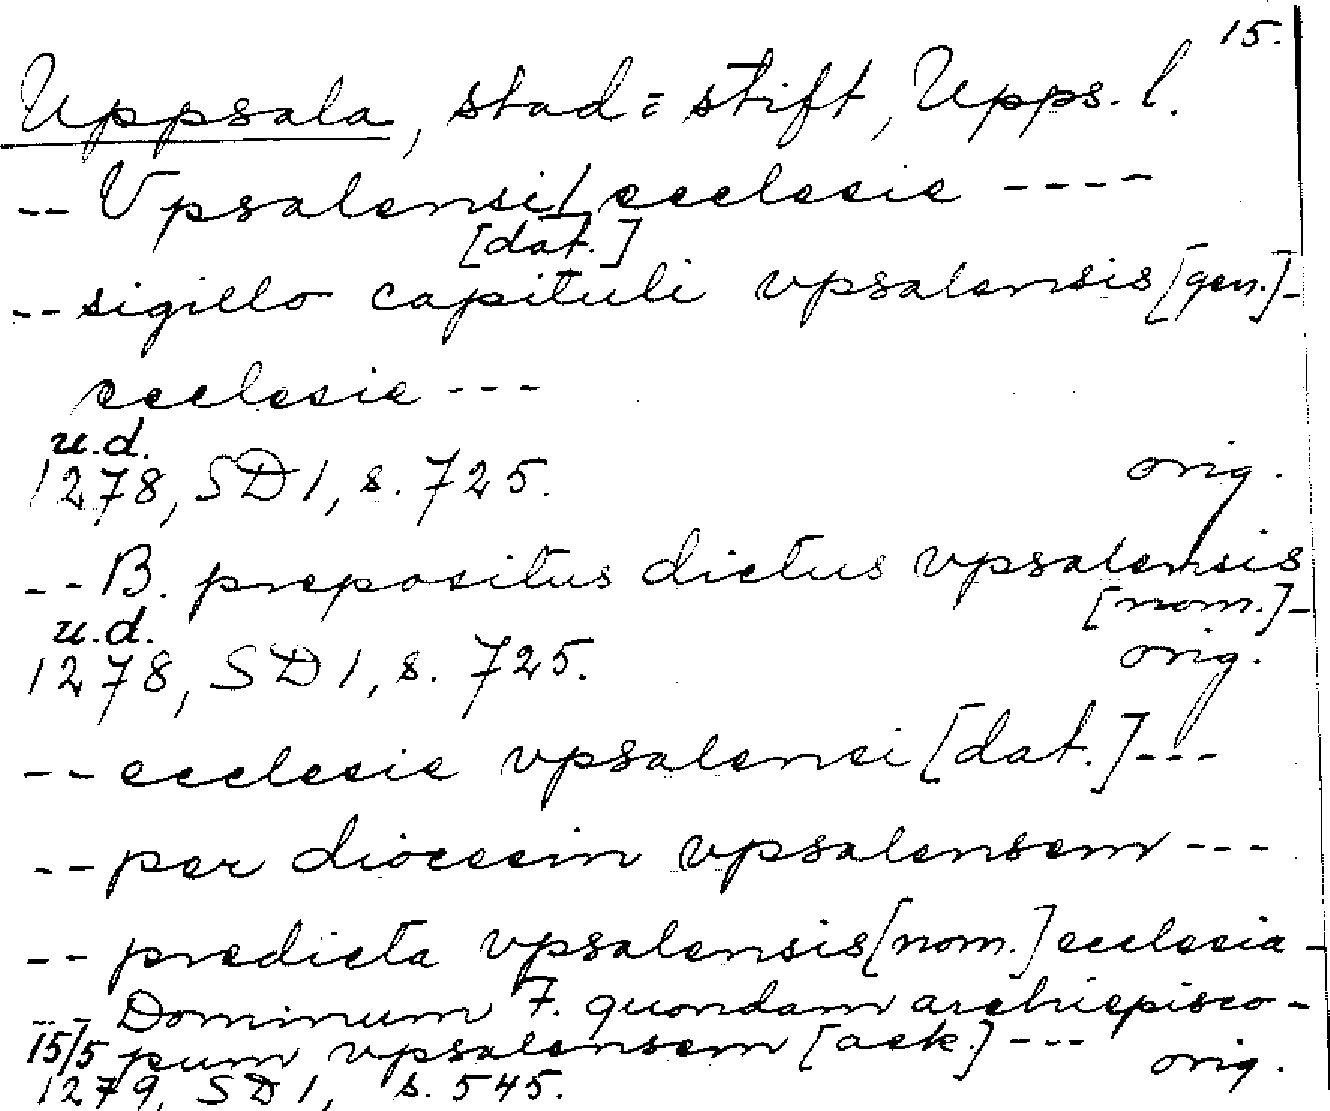 15.
Uppsala, stad = stift, Upps. l.
-- Vpsalensi / ecclesie ----
[dat.]
-- sigillo capituli vpsalensis [gen.]-
ecclesie ---
u.d.
1278, SD 1, s. 725. orig.
-- B. prepositus dictus vpsalensis
[nom.]-
u.d.
1278, SD 1, s. 725. orig.
-- ecclesie vpsalensi [dat.] ---
-- per diocesin vpsalensem ---
-- predicta vpsalensis [nom.] ecclesia -
--- Dominum F. quondam archiepisco-
15/5 pum vpsalensem [ack.] --- orig.
1279, SD 1, s. 545.